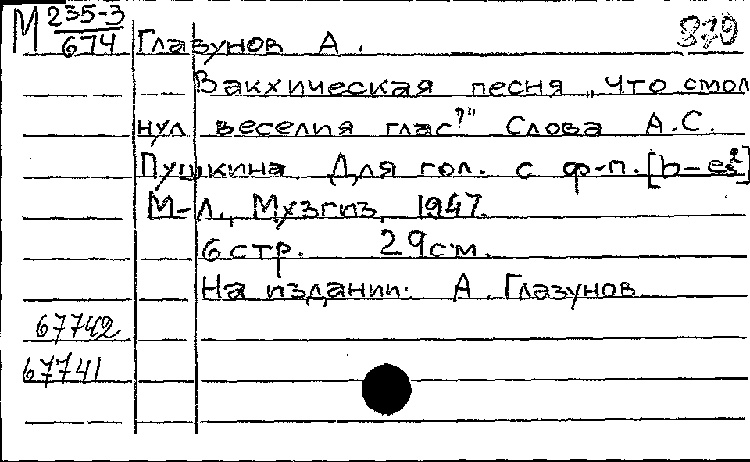 М 235-3
674
Глазунов А. 879
Вакхическая песня „Что смол
нул веселия глас?" Слова А.С.
Пушкина Для гол. с ф-п. [b-es²]
М-Л., Музгиз, 1947.
6 стр. 29 см.
На издании: А. Глазунов
67742
67741